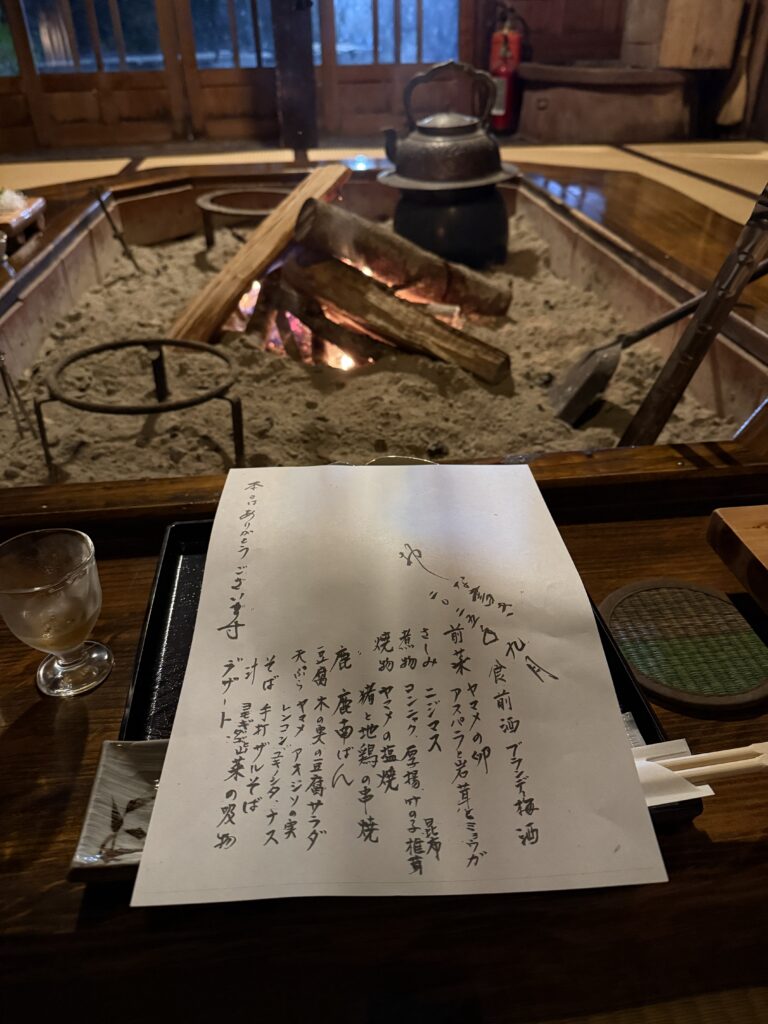 九月
食前酒 ブランデー梅酒
前菜 ヤマメの卵
アスパラと岩茸とミョウガ
さしみ ニジマス
昆布
煮物 コンニャク 厚揚 竹の子 椎茸
焼物 ヤマメの塩焼
猪と地鶏の串焼
鹿 鹿南ばん
豆腐 木の実の豆腐サラダ
天ぷら ヤマメ アオジソの実
レンコン・ユキノシタ・ナス
そば 手打ザルそば
汁 ヨモギ 山菜の吸物
デザート
本日はありがとうございます